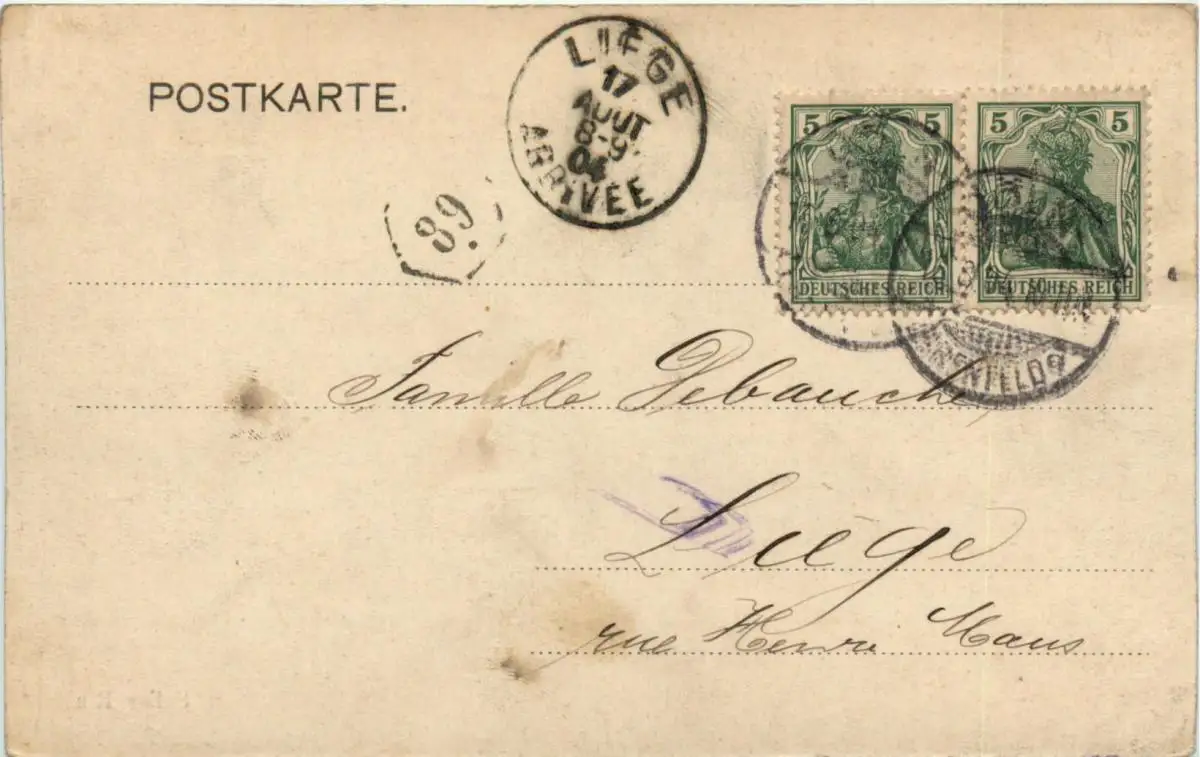 POSTKARTE.
LIÉGE
17
AOUT
8-9
04
ARRIVÉE
89
5 5
DEUTSCHES REICH
5 5
DEUTSCHES REICH
Famille Debauche
Liége
rue Henri Maus